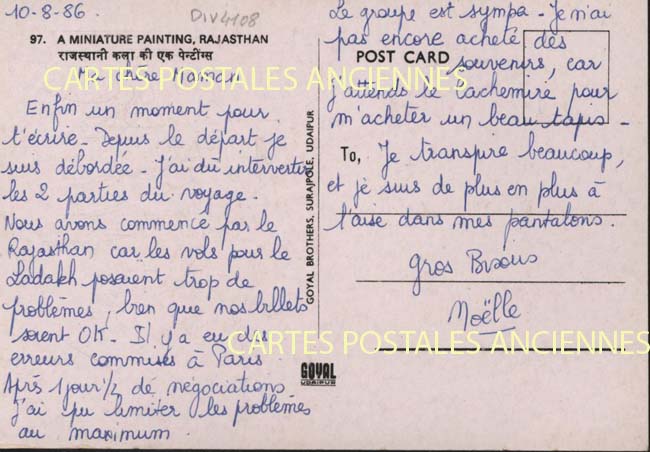 10-8-86
DIV4108
97. A MINIATURE PAINTING, RAJASTHAN
राजस्थानी कला की एक पेन्टींग्स
Ma chère Maman
Enfin un moment pour
t'écrire - Depuis le départ je
suis débordée - J'ai dû intervertir
les 2 parties du voyage -
Nous avons commencé par le
Rajasthan car les vols pour le
Ladakh posaient trop de
problèmes, bien que nos billets
soient OK - Il y a eu des
erreurs commises à Paris
Après 1 jour 1/2 de négociations
j'ai pu limiter les problèmes
au maximum.
GOYAL BROTHERS, SURAJPOLE, UDAIPUR
GOYAL
UDAIPUR
POST CARD
To,
Le groupe est sympa - Je n'ai
pas encore acheté des
souvenirs, car
j'attends le Cachemire pour
m'acheter un beau tapis -
Je transpire beaucoup,
et je suis de plus en plus à
l'aise dans mes pantalons.
Gros Bisous
Noëlle
CARTES POSTALES ANCIENNES
CARTES POSTALES ANCIENNES